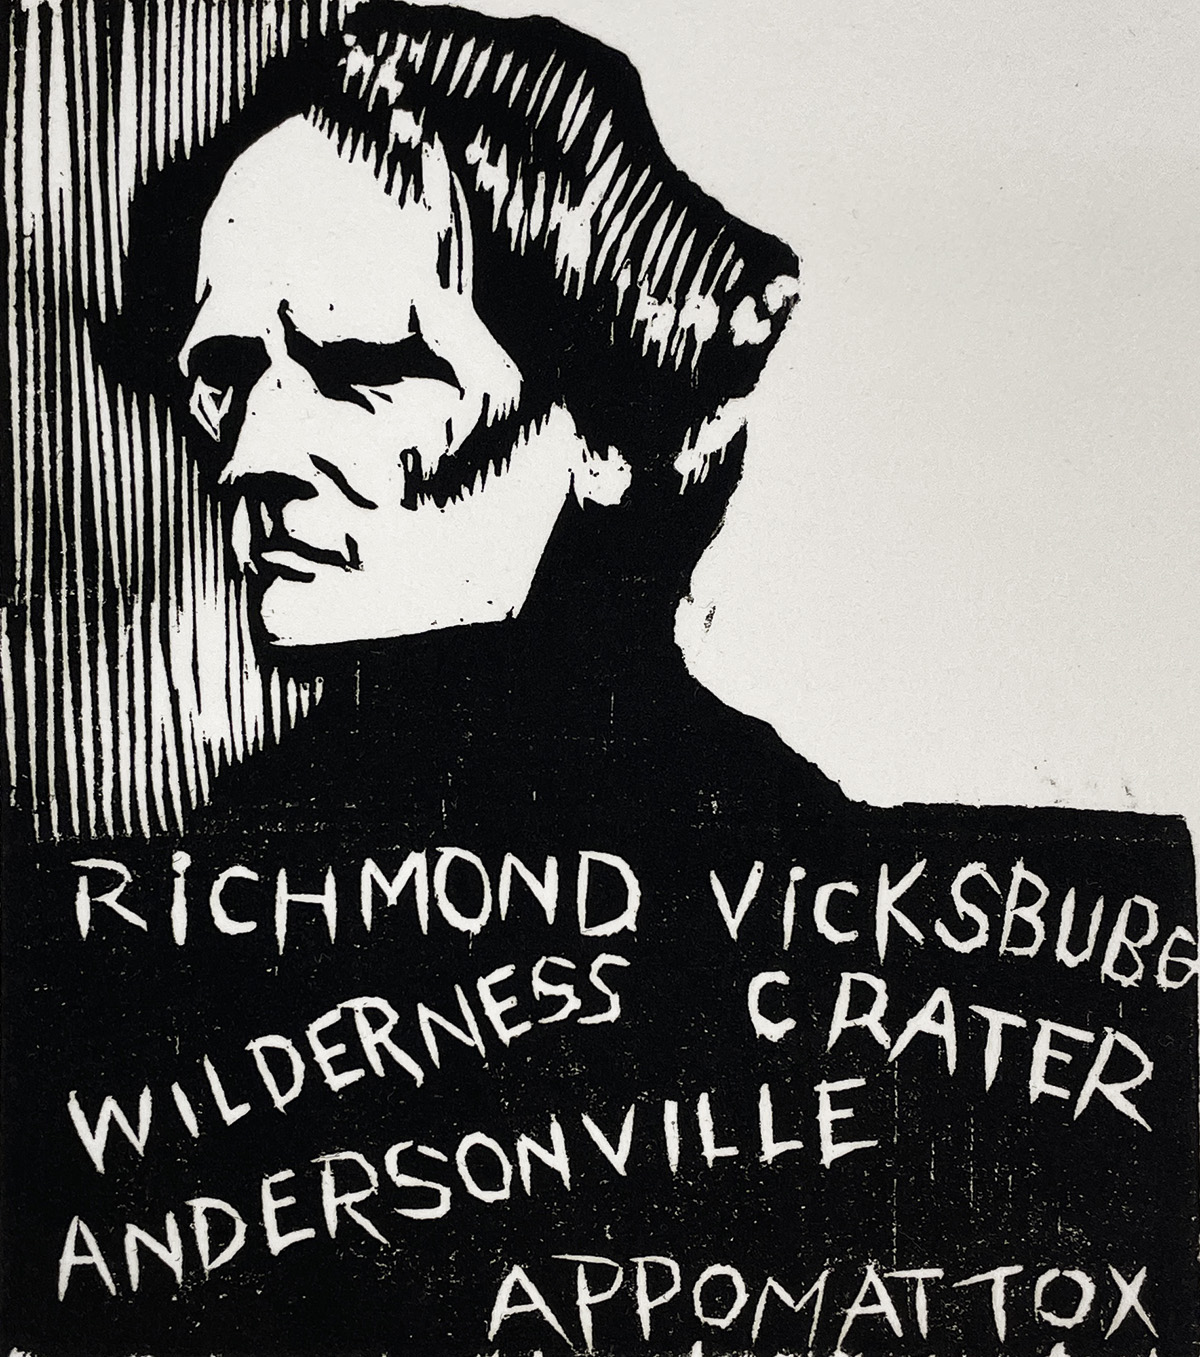 RICHMOND VICKSBURG
WILDERNESS CRATER
ANDERSONVILLE
APPOMATTOX